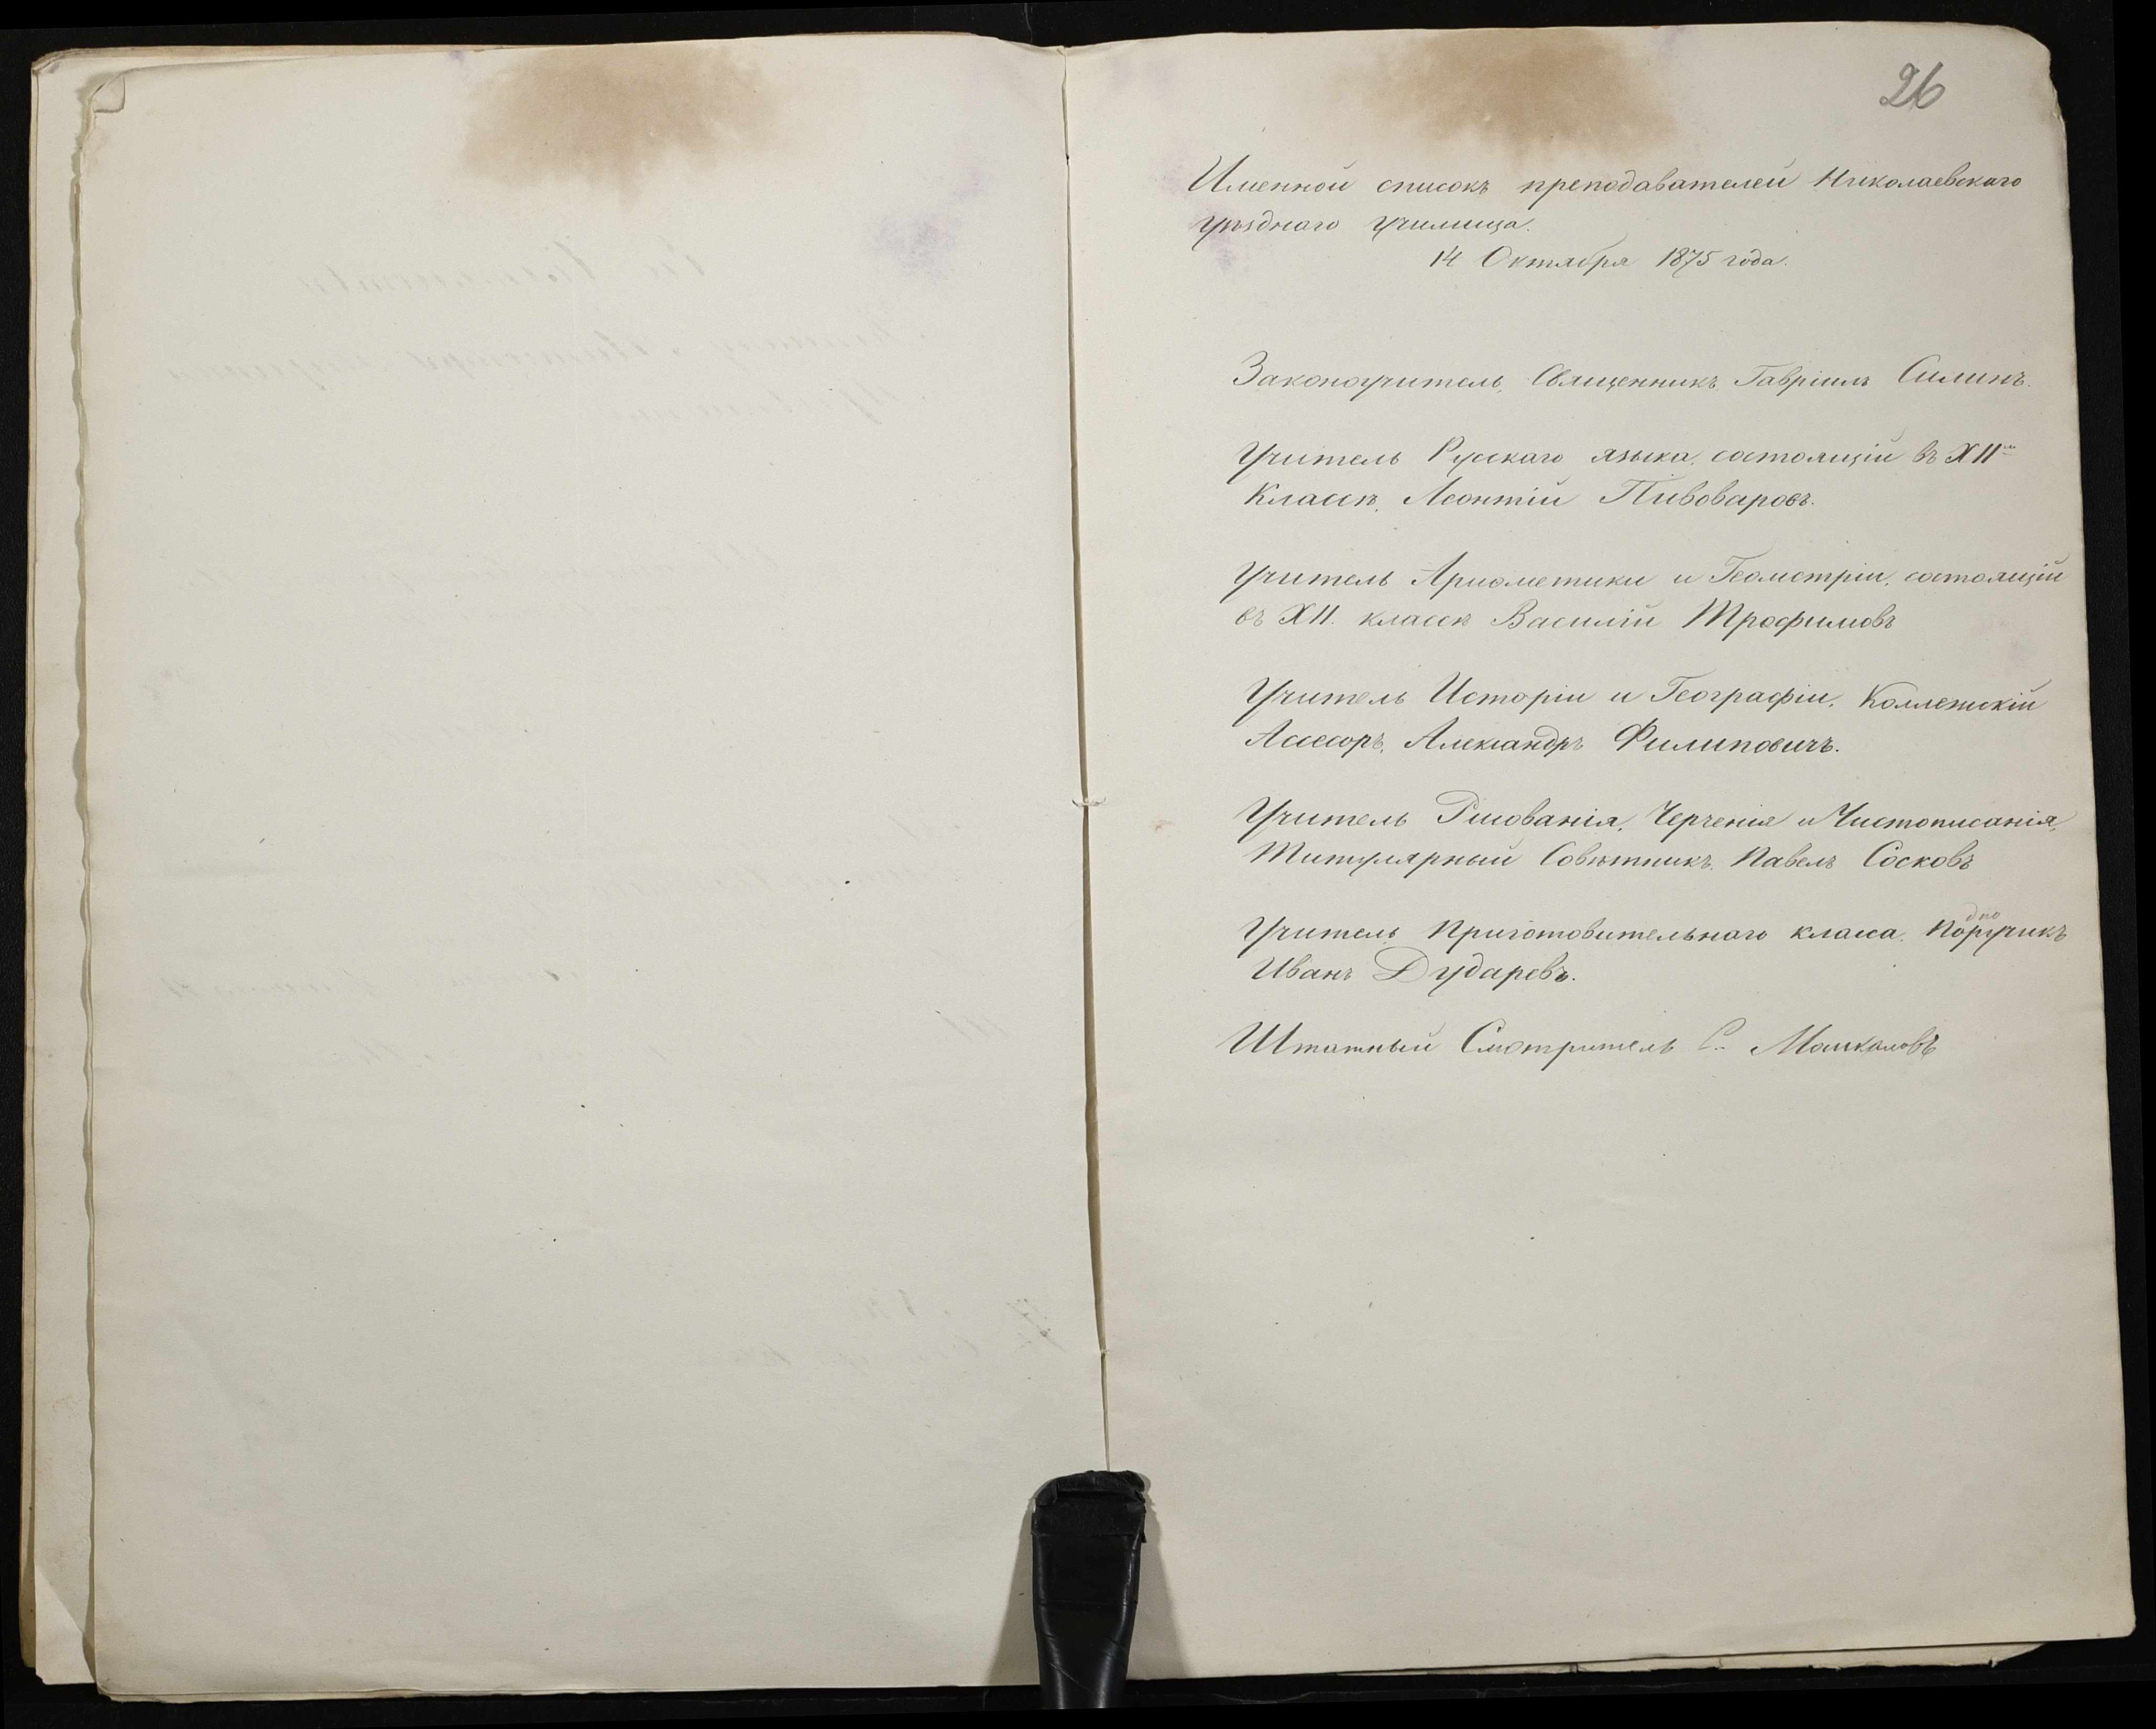 26
Именной списокъ преподавателей Николаевскаго
Уѣзднаго Училища.
14 Октября 1875 года.
Законоучитель, Священникъ Гавріилъ Силинъ.
Учитель Русскаго языка, состоящій въ XII^м
Классѣ, Леонтій Пивоваровъ.
Учитель Ариѳметики и Геометріи, состоящій
въ XII. классѣ Василій Трофимовъ
Учитель Исторіи и Географіи, Коллежскій
Асессоръ, Александръ Филиповичъ.
Учитель Рисованія, Черченія и Чистописанія,
Титулярный Совѣтникъ Павелъ Сосковъ
Учитель Приготовительнаго класса, Подпоручикъ
Иванъ Дударевъ.
Штатный Смотритель С.